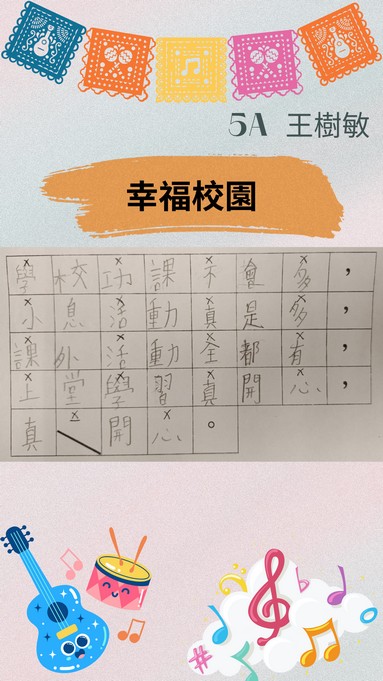 5A 王樹敏
幸福校園
學校功課不會多，
小息活動真是多，
課外活動全都有，
上堂學習真開心，
真 開心。